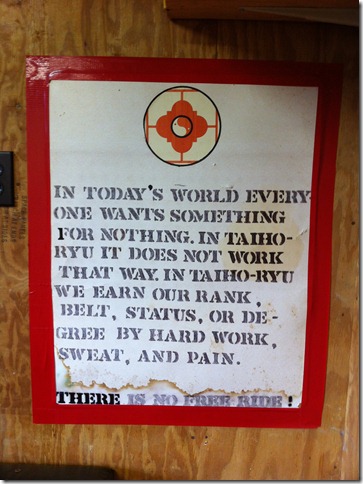 IN TODAY'S WORLD EVERY-
ONE WANTS SOMETHING
FOR NOTHING. IN TAIHO-
RYU IT DOES NOT WORK
THAT WAY. IN TAIHO-RYU
WE EARN OUR RANK,
BELT, STATUS, OR DE-
GREE BY HARD WORK,
SWEAT, AND PAIN.
THERE IS NO FREE RIDE!